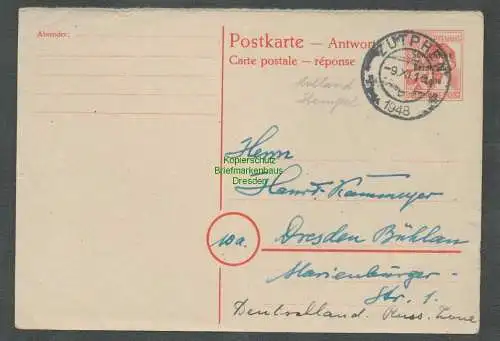 Absender:
Postkarte — Antwort
Carte postale — réponse
ZUTPHEN
-9.XI.18
1948
Holland
Stempel
Kopierschutz
Briefmarkenhaus
Dresden
Herrn
Hans F. Kammeyer
10a.
Dresden Bühlau
Marienburger-
Str. 1.
Deutschland. Russ. Zone